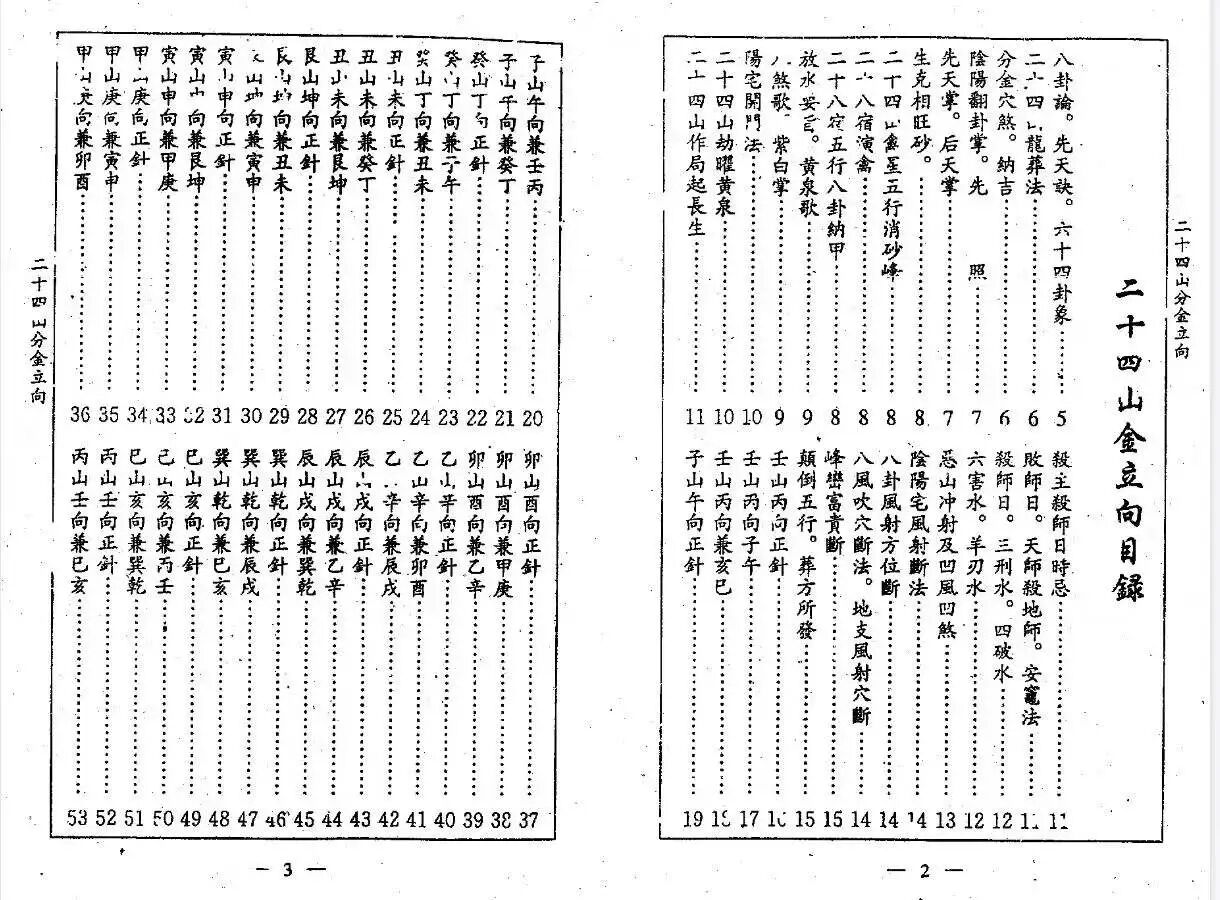 二十四山分金立向
二十四山金立向目録
八卦論。先天訣。六十四卦象 5
二十四山龍葬法 6
分金穴煞。納吉 6
陰陽翻卦掌。先 照 7
先天掌。后天掌 7
生克相旺砂。 8
二十四山禽星五行消砂峰 8
二十八宿演禽 8
二十八宿五行八卦納甲 8
放水妥言。黃泉歌 9
八煞歌。紫白掌 9
陽宅開門法 10
二十四山劫曜黃泉 10
二十四山作局起長生 11
殺主殺師日時忌 11
敗師日。天師殺地師。安竈法 11
殺師日。三刑水。四破水 12
六害水。羊刃水 12
惡山冲射及凹風凹煞 13
陰陽宅風射斷法 14
八卦風射方位斷 14
八風吹穴斷法。地支風射穴斷 14
峰巒富貴斷 15
顛倒五行。葬方所發 15
壬山丙向正針 16
壬山丙向子午 17
壬山丙向兼亥巳 18
子山午向正針 19
— 2 —
子山午向兼壬丙 20
子山午向兼癸丁 21
癸山丁向正針 22
癸山丁向兼子午 23
癸山丁向兼丑未 24
丑山未向正針 25
丑山未向兼癸丁 26
丑山未向兼艮坤 27
艮山坤向正針 28
艮山坤向兼丑未 29
艮山坤向兼寅申 30
寅山申向正針 31
寅山申向兼艮坤 32
寅山申向兼甲庚 33
甲山庚向正針 34
甲山庚向兼寅申 35
甲山庚向兼卯酉 36
卯山酉向正針 37
卯山酉向兼甲庚 38
卯山酉向兼乙辛 39
乙山辛向正針 40
乙山辛向兼卯酉 41
乙山辛向兼辰戌 42
辰山戌向正針 43
辰山戌向兼乙辛 44
辰山戌向兼巽乾 45
巽山乾向正針 46
巽山乾向兼辰戌 47
巽山乾向兼巳亥 48
巳山亥向正針 49
巳山亥向兼丙壬 50
巳山亥向兼巽乾 51
丙山壬向正針 52
丙山壬向兼巳亥 53
二十四山分金立向
— 3 —